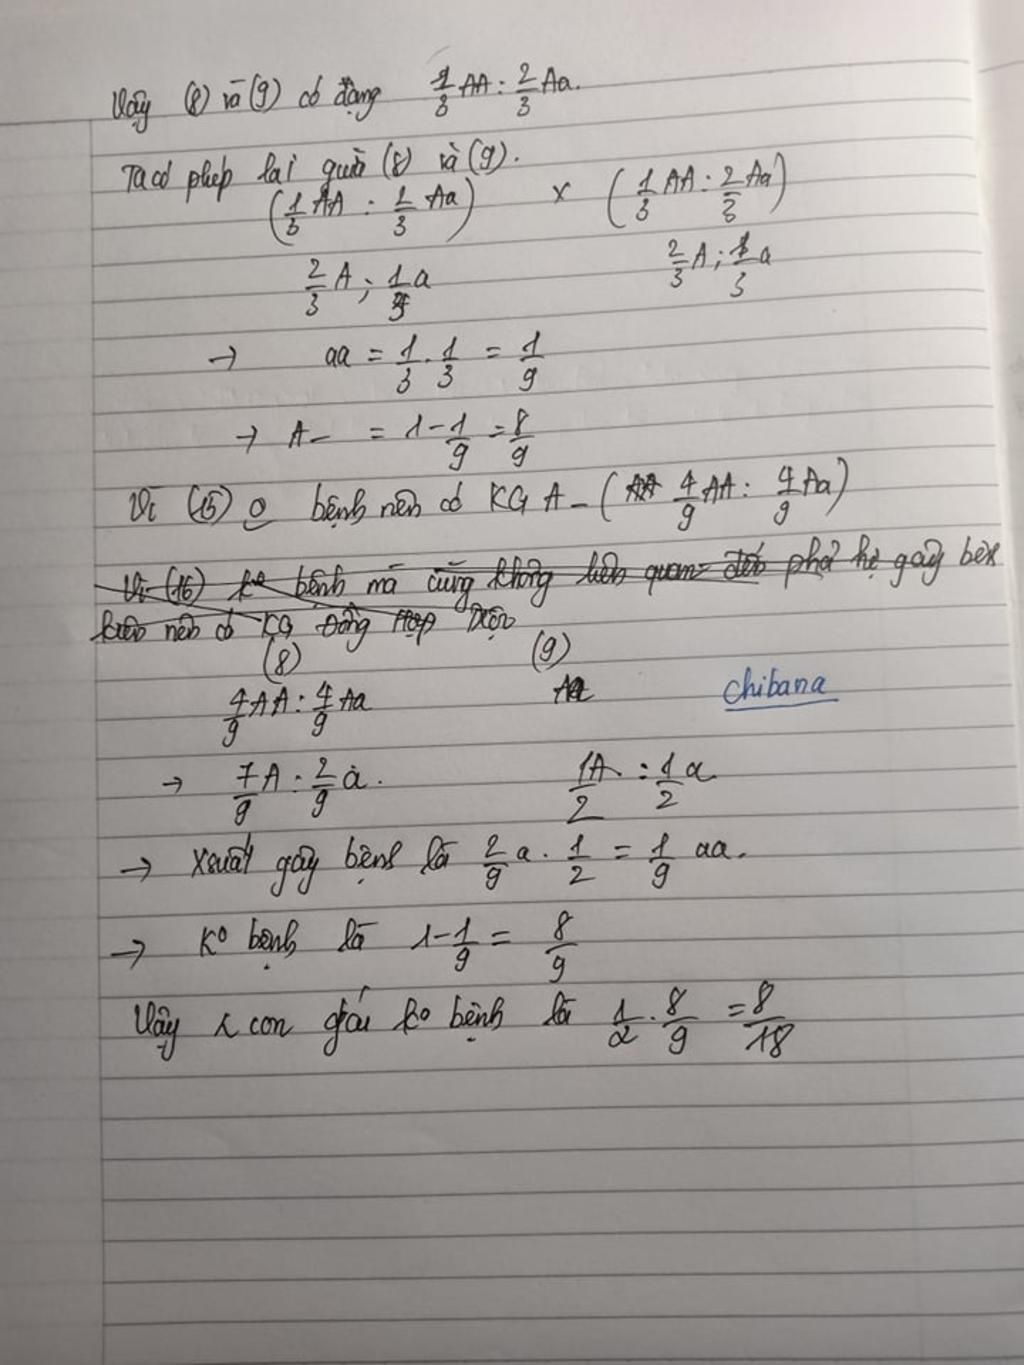 Vậy (8) và (9) có dạng 1/3 AA : 2/3 Aa.
Ta có phép lai giữa (8) và (9).
(1/3 AA : 2/3 Aa) x (1/3 AA : 2/3 Aa)
2/3 A ; 1/3 a 2/3 A ; 1/3 a
→ aa = 1/3 . 1/3 = 1/9
→ A- = 1 - 1/9 = 8/9
Vì (15) o bệnh nên có KG A- (4/9 AA : 4/9 Aa)
Vì (16) ko bệnh mà cũng không liên quan đến phả hệ gây bên
trên nên có KG Đồng Hợp trội
(8) (9)
4/9 AA : 4/9 Aa Aa
Chibana
→ 7/9 A : 2/9 a. 1/2 A : 1/2 a
→ Xsuất gây bệnh là 2/9 a . 1/2 = 1/9 aa.
→ Ko bệnh là 1 - 1/9 = 8/9
Vậy con gái ko bệnh là 1/2 . 8/9 = 8/18